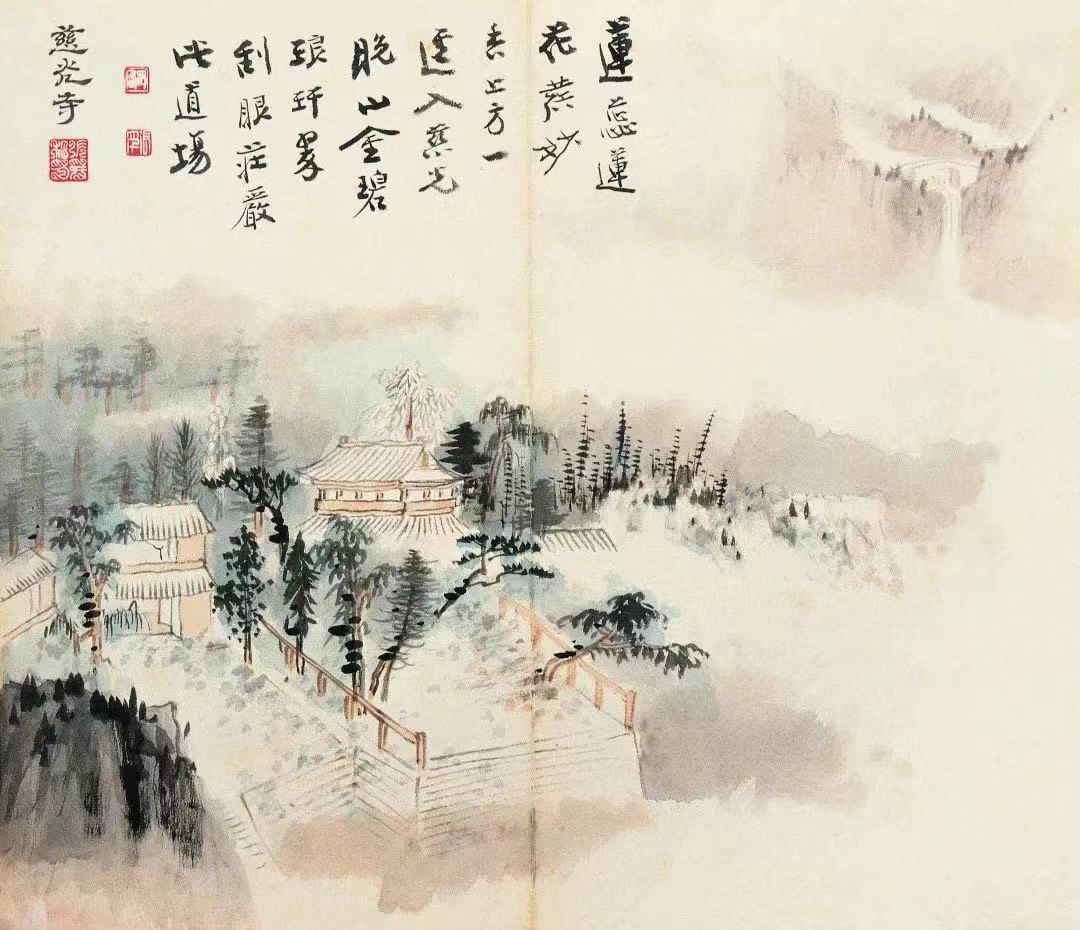 蓮蕊蓮
花葉妙
香上方一
逕入慈光
晚山金碧
琅玕翠
刮眼莊嚴
此道場
慈光寺